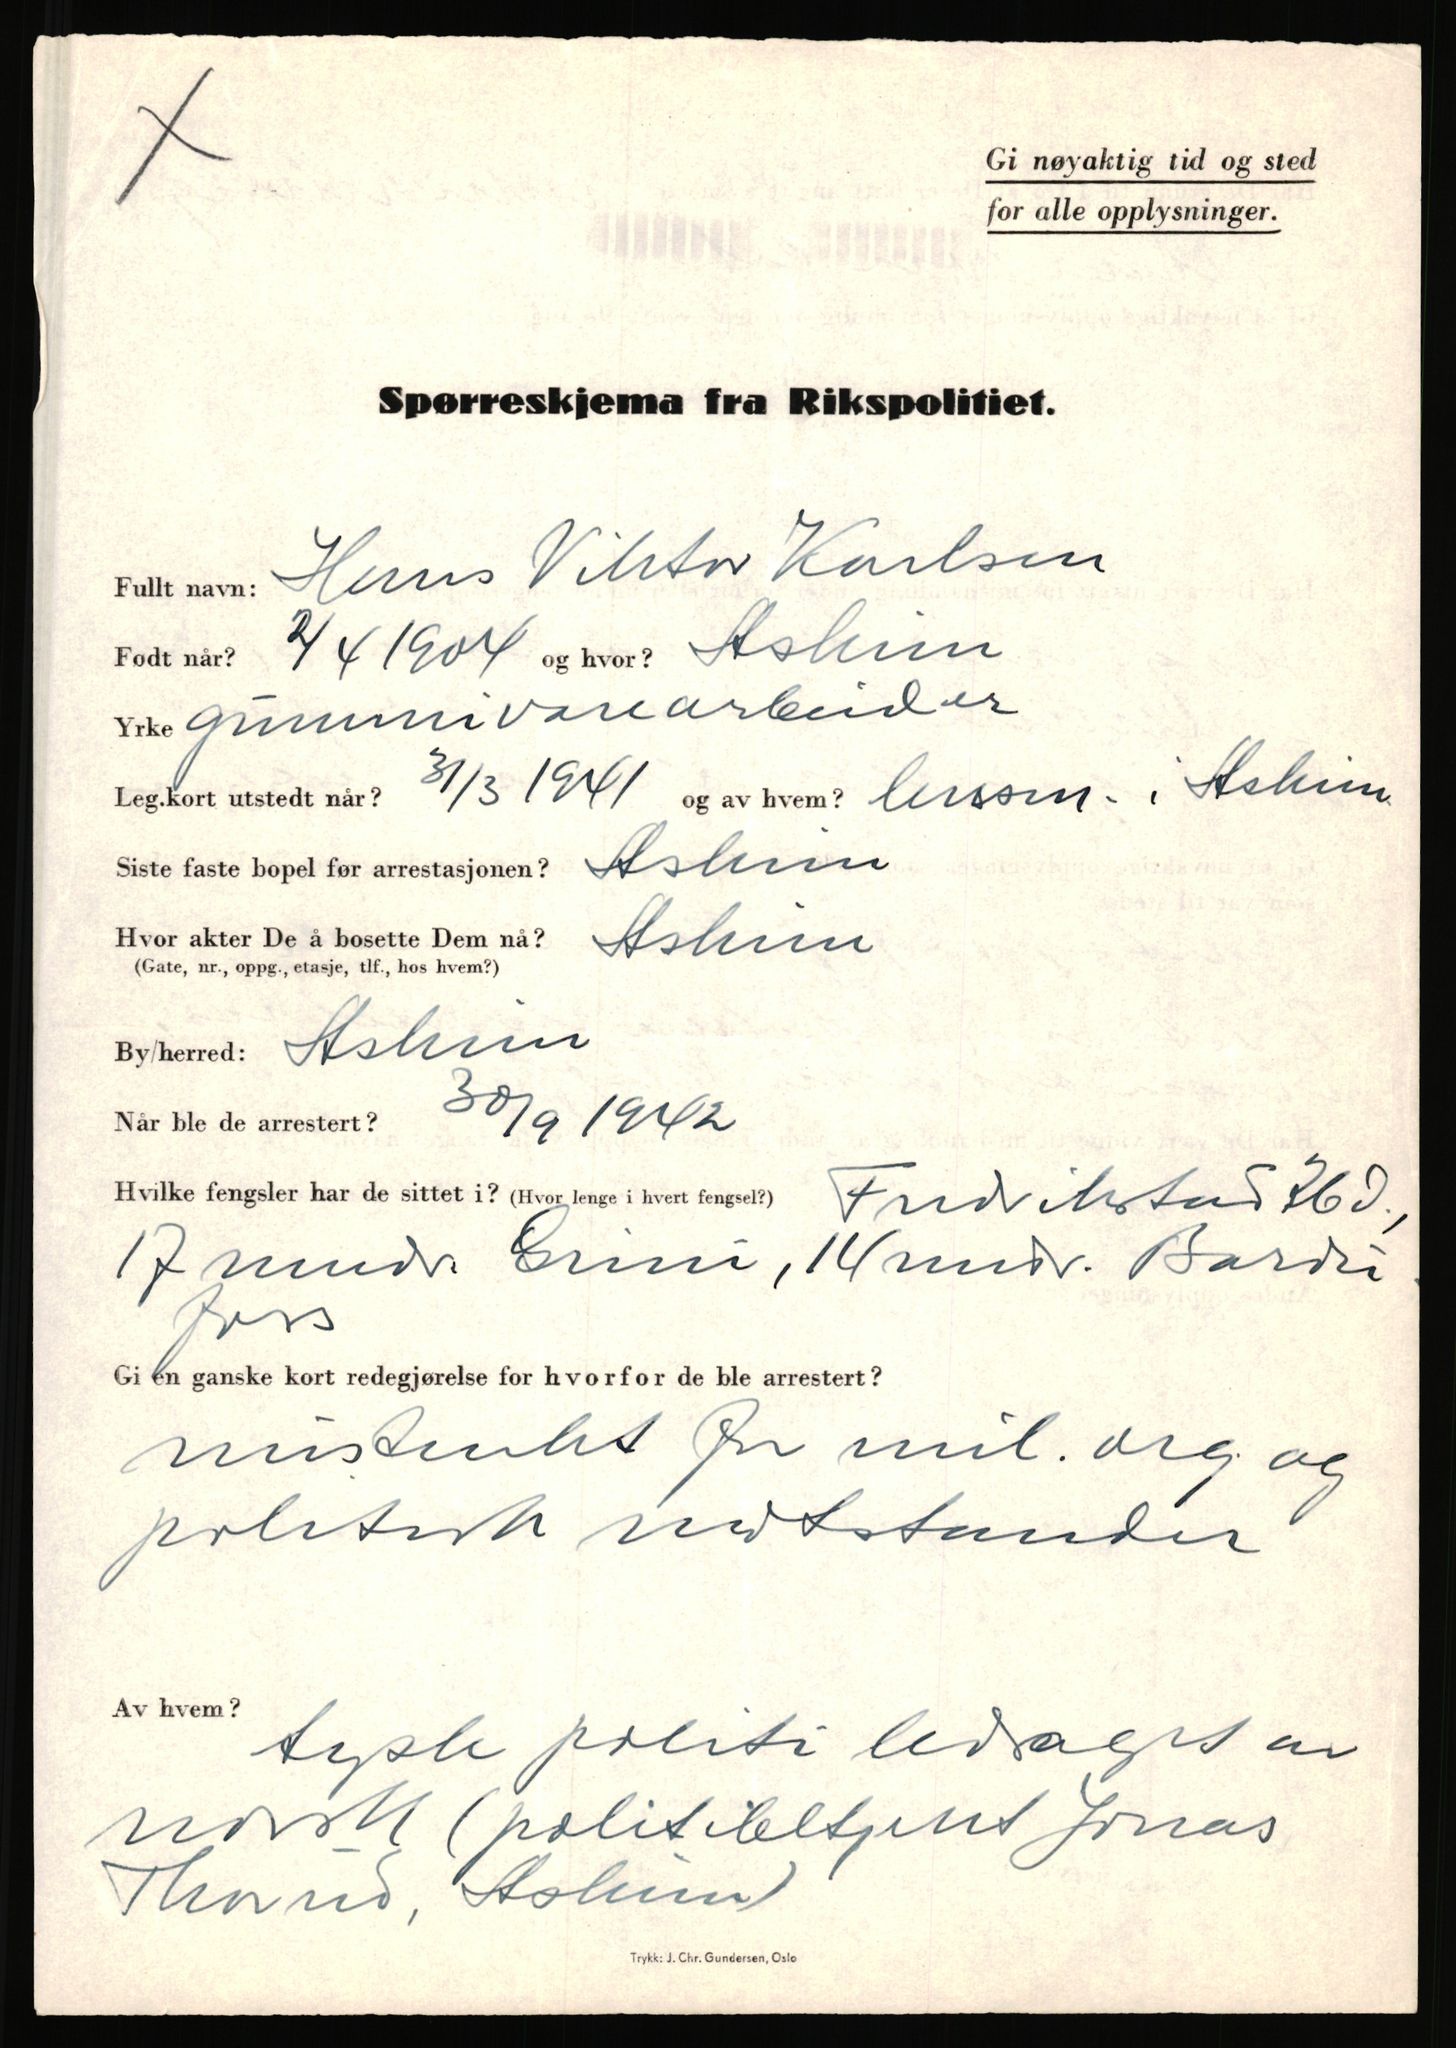 Gi nøyaktig tid og sted
for alle opplysninger.
Spørreskjema fra Rikspolitiet.
Fullt navn: Hans Viktor Karlsen
Født når? 2/4 1904 og hvor? Askim
Yrke gummivarearbeider
Leg.kort utstedt når? 31/3 1941 og av hvem? lensm. i Askim
Siste faste bopel før arrestasjonen? Askim
Hvor akter De å bosette Dem nå? Askim
(Gate, nr., oppg., etasje, tlf., hos hvem?)
By/herred: Askim
Når ble de arrestert? 30/9 1942
Hvilke fengsler har de sittet i? (Hvor lenge i hvert fengsel?) Fredrikstad 26 d.,
17 mndr. Grini, 14 mndr. Bardu
foss
Gi en ganske kort redegjørelse for hvorfor de ble arrestert?
mistenkt for mil. org. og
politisk motstander
Av hvem?
tysk politi ledsaget av
norsk (politibetjent Jonas
Thorud, Askim)
Trykk: J. Chr. Gundersen, Oslo